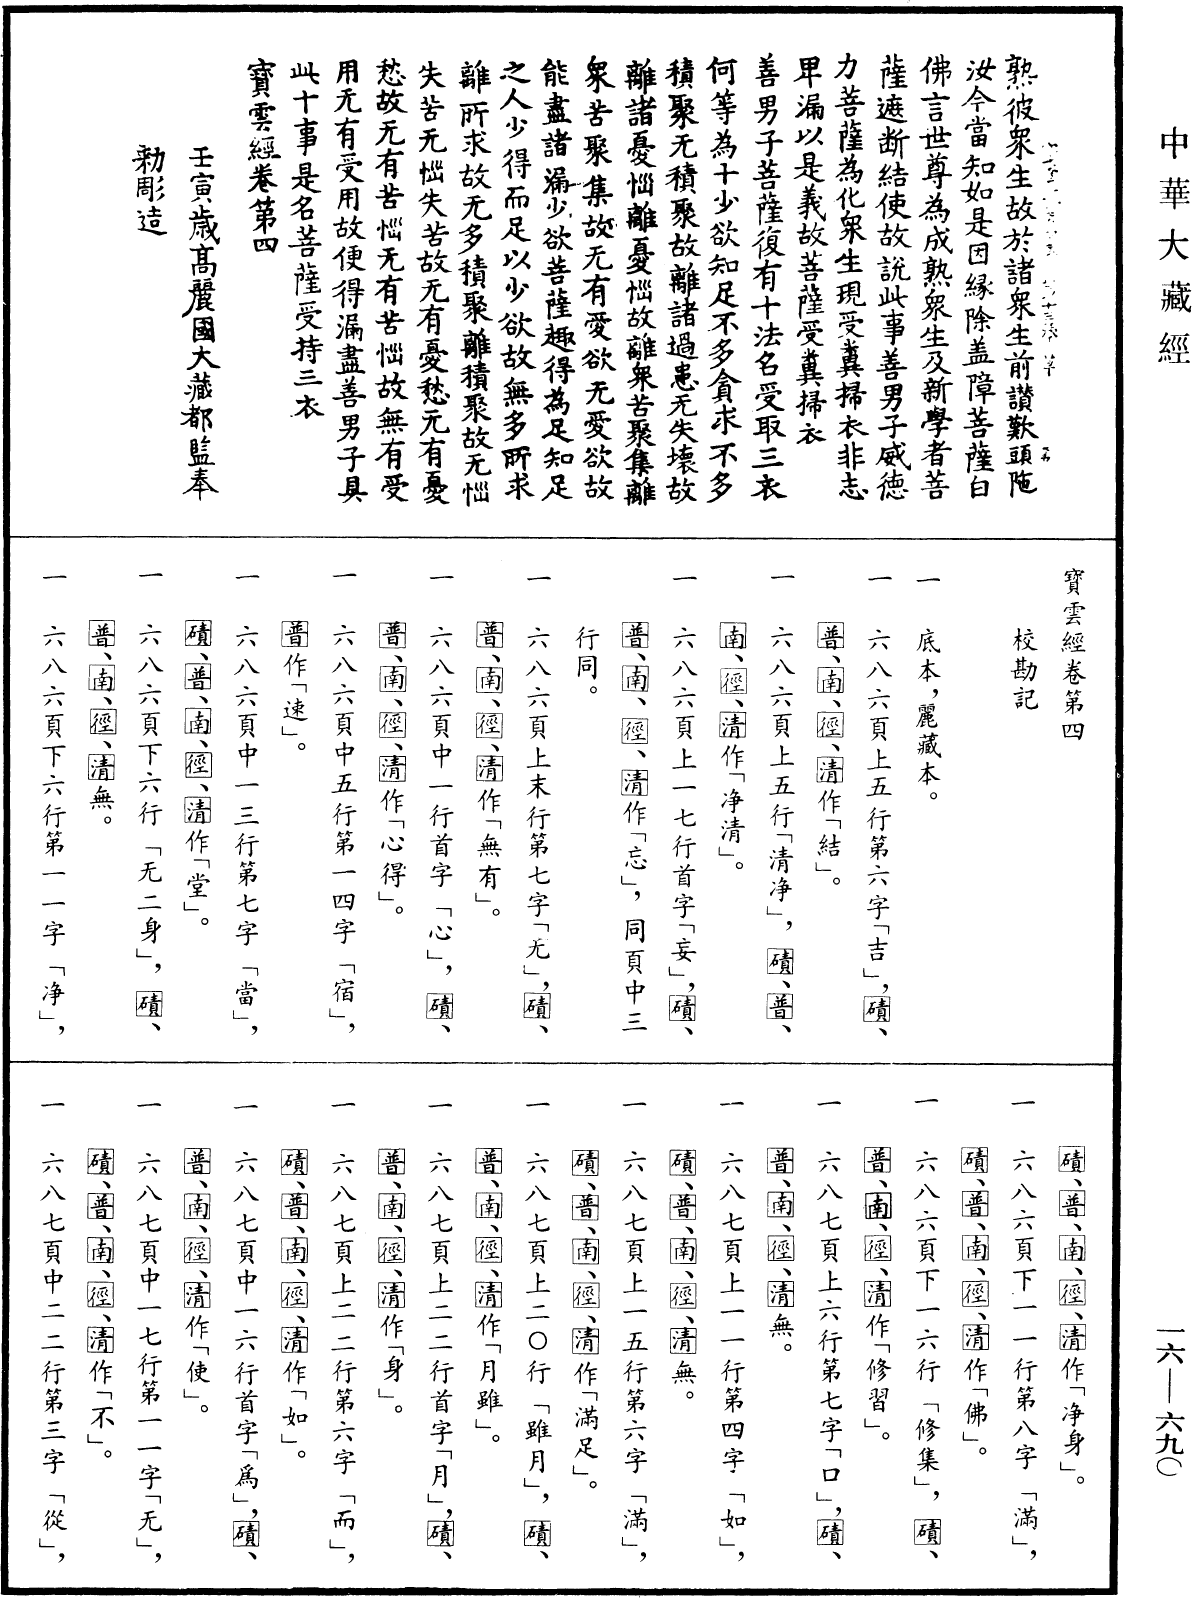 中華大藏經
熟彼衆生故於諸衆生前讃歎頭陁
汝今當知如是因縁除盖障菩薩白
佛言世尊為成熟衆生及新學者菩
薩遮断結使故說此事善男子威德
力菩薩為化衆生現受糞掃衣非志
卑漏以是義故菩薩受糞掃衣
善男子菩薩復有十法名受取三衣
何等為十少欲知足不多貪求不多
積聚无積聚故離諸過患无失壞故
離諸憂惱離憂惱故離衆苦聚集離
衆苦聚集故无有愛欲无愛欲故
能盡諸漏少欲菩薩趣得為足知足
之人少得而足以少欲故無多所求
離所求故无多積聚離積聚故无惱
失苦无惱失苦故无有憂愁无有憂
愁故无有苦惱无有苦惱故無有受
用无有受用故便得漏盡善男子具
此十事是名菩薩受持三衣
寶雲經卷第四
壬寅歳髙麗國大藏都監奉
勅彫造
寶雲經卷第四
校勘記
一 底本，麗藏本。
一 六八六頁上五行第六字「吉」，磧、
普、南、徑、清作「結」。
一 六八六頁上五行「清净」，磧、普、
南、徑、清作「净清」。
一 六八六頁上一七行首字「妄」，磧、
普、南、徑、清作「忘」，同頁中三
行同。
一 六八六頁上末行第七字「无」，磧、
普、南、徑、清作「無有」。
一 六八六頁中一行首字「心」，磧、
普、南、徑、清作「心得」。
一 六八六頁中五行第一四字「宿」，
普作「速」。
一 六八六頁中一三行第七字「當」，
磧、普、南、徑、清作「堂」。
一 六八六頁下六行「无二身」，磧、
普、南、徑、清無。
一 六八六頁下六行第一一字「净」，
磧、普、南、徑、清作「净身」。
一 六八六頁下一一行第八字「滿」，
磧、普、南、徑、清作「佛」。
一 六八六頁下一六行「修集」，磧、
普、南、徑、清作「修習」。
一 六八七頁上六行第七字「口」，磧、
普、南、徑、清無。
一 六八七頁上一一行第四字「如」，
磧、普、南、徑、清無。
一 六八七頁上一五行第六字「滿」，
磧、普、南、徑、清作「滿足」。
一 六八七頁上二〇行「雖月」，磧、
普、南、徑、清作「月雖」。
一 六八七頁上二二行首字「月」，磧、
普、南、徑、清作「身」。
一 六八七頁上二二行第六字「而」，
磧、普、南、徑、清作「如」。
一 六八七頁中一六行首字「爲」，磧、
普、南、徑、清作「使」。
一 六八七頁中一七行第一一字「无」，
磧、普、南、徑、清作「不」。
一 六八七頁中二二行第三字「從」，
一六—六九〇